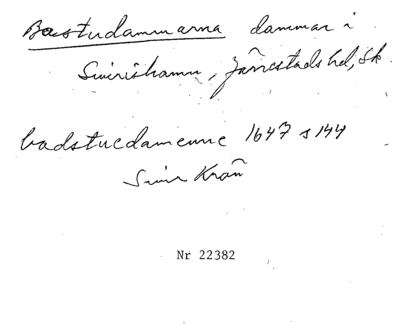 Bastudammarna dammar i
Simrishamn, Järrestads hd, Sk.
badstuedamenne 1647 s 144
Sime Krañ
Nr 22382